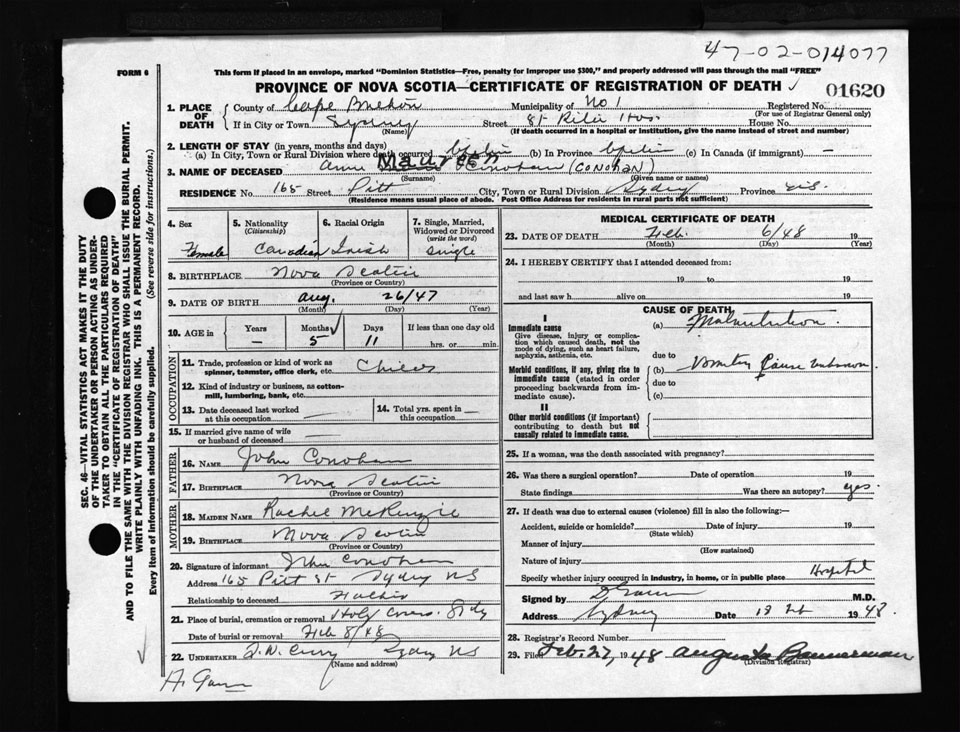 47-02-014077
FORM 6
This form if placed in an envelope, marked "Dominion Statistics—Free, penalty for improper use $300," and properly addressed will pass through the mail "FREE"
PROVINCE OF NOVA SCOTIA—CERTIFICATE OF REGISTRATION OF DEATH
01620
1. PLACE OF DEATH
County of Cape Breton Municipality of No 1 Registered No.
(For use of Registrar General only)
If in City or Town Sydney Street St Rita Hos. House No.
(Name) (If death occurred in a hospital or institution, give the name instead of street and number)
2. LENGTH OF STAY (in years, months and days)
(a) In City, Town or Rural Division where death occurred (b) In Province (c) In Canada (if immigrant) —
3. NAME OF DECEASED Anne Conoham (CONOHAN)
(Surname) (Given name or names)
RESIDENCE No. 165 Street Pitt City, Town or Rural Division Sydney Province N.S.
(Residence means usual place of abode. Post Office Address for residents in rural parts not sufficient)
4. Sex
Female
5. Nationality
(Citizenship)
Canadian
6. Racial Origin
Irish
7. Single, Married, Widowed or Divorced
(write the word)
Single
8. BIRTHPLACE Nova Scotia
(Province or Country)
9. DATE OF BIRTH Aug. 26/47
(Month) (Day) (Year)
10. AGE in
Years Months Days If less than one day old
— 5 11 hrs. or min.
OCCUPATION
11. Trade, profession or kind of work as spinner, teamster, office clerk, etc. Child
12. Kind of industry or business, as cotton-mill, lumbering, bank, etc.
13. Date deceased last worked at this occupation
14. Total yrs. spent in this occupation
15. If married give name of wife or husband of deceased
FATHER
16. NAME John Conoham
17. BIRTHPLACE Nova Scotia
(Province or Country)
MOTHER
18. MAIDEN NAME Rachel McKenzie
19. BIRTHPLACE Nova Scotia
(Province or Country)
20. Signature of informant John Conoham
Address 165 Pitt St Sydney NS
Relationship to deceased Father
21. Place of burial, cremation or removal Holy Cross. Sydney
Date of burial or removal Feb 8/48
22. UNDERTAKER Curry Sydney NS
(Name and address)
MEDICAL CERTIFICATE OF DEATH
23. DATE OF DEATH Feb. 6/48 19
(Month) (Day) (Year)
24. I HEREBY CERTIFY that I attended deceased from:
19 to 19
and last saw h alive on 19
CAUSE OF DEATH
I
Immediate cause
Give disease, injury or complication which caused death, not the mode of dying, such as heart failure, asphyxia, asthenia, etc.
(a) Malnutrition.
due to
Morbid conditions, if any, giving rise to immediate cause (stated in order proceeding backwards from immediate cause).
(b) Vomiting Cause unknown.
due to
(c)
II
Other morbid conditions (if important) contributing to death but not causally related to immediate cause.
25. If a woman, was the death associated with pregnancy?
26. Was there a surgical operation? Date of operation 19
State findings Was there an autopsy? yes.
27. If death was due to external causes (violence) fill in also the following:—
Accident, suicide or homicide? Date of injury 19
(State which)
Manner of injury
(How sustained)
Nature of injury
Specify whether injury occurred in industry, in home, or in public place Hospital
Signed by M.D.
Address Sydney Date 18 Feb 1948
28. Registrar's Record Number
29. Filed Feb. 27, 1948 Augusta Bannerman
(Division Registrar)
SEC. 46—VITAL STATISTICS ACT MAKES IT THE DUTY
OF THE UNDERTAKER OR PERSON ACTING AS UNDERTAKER TO OBTAIN ALL THE PARTICULARS REQUIRED
IN THE "CERTIFICATE OF REGISTRATION OF DEATH"
AND TO FILE THE SAME WITH THE DIVISION REGISTRAR WHO SHALL ISSUE THE BURIAL PERMIT.
WRITE PLAINLY WITH UNFADING INK. THIS IS A PERMANENT RECORD.
Every item of information should be carefully supplied. (See reverse side for instructions.)